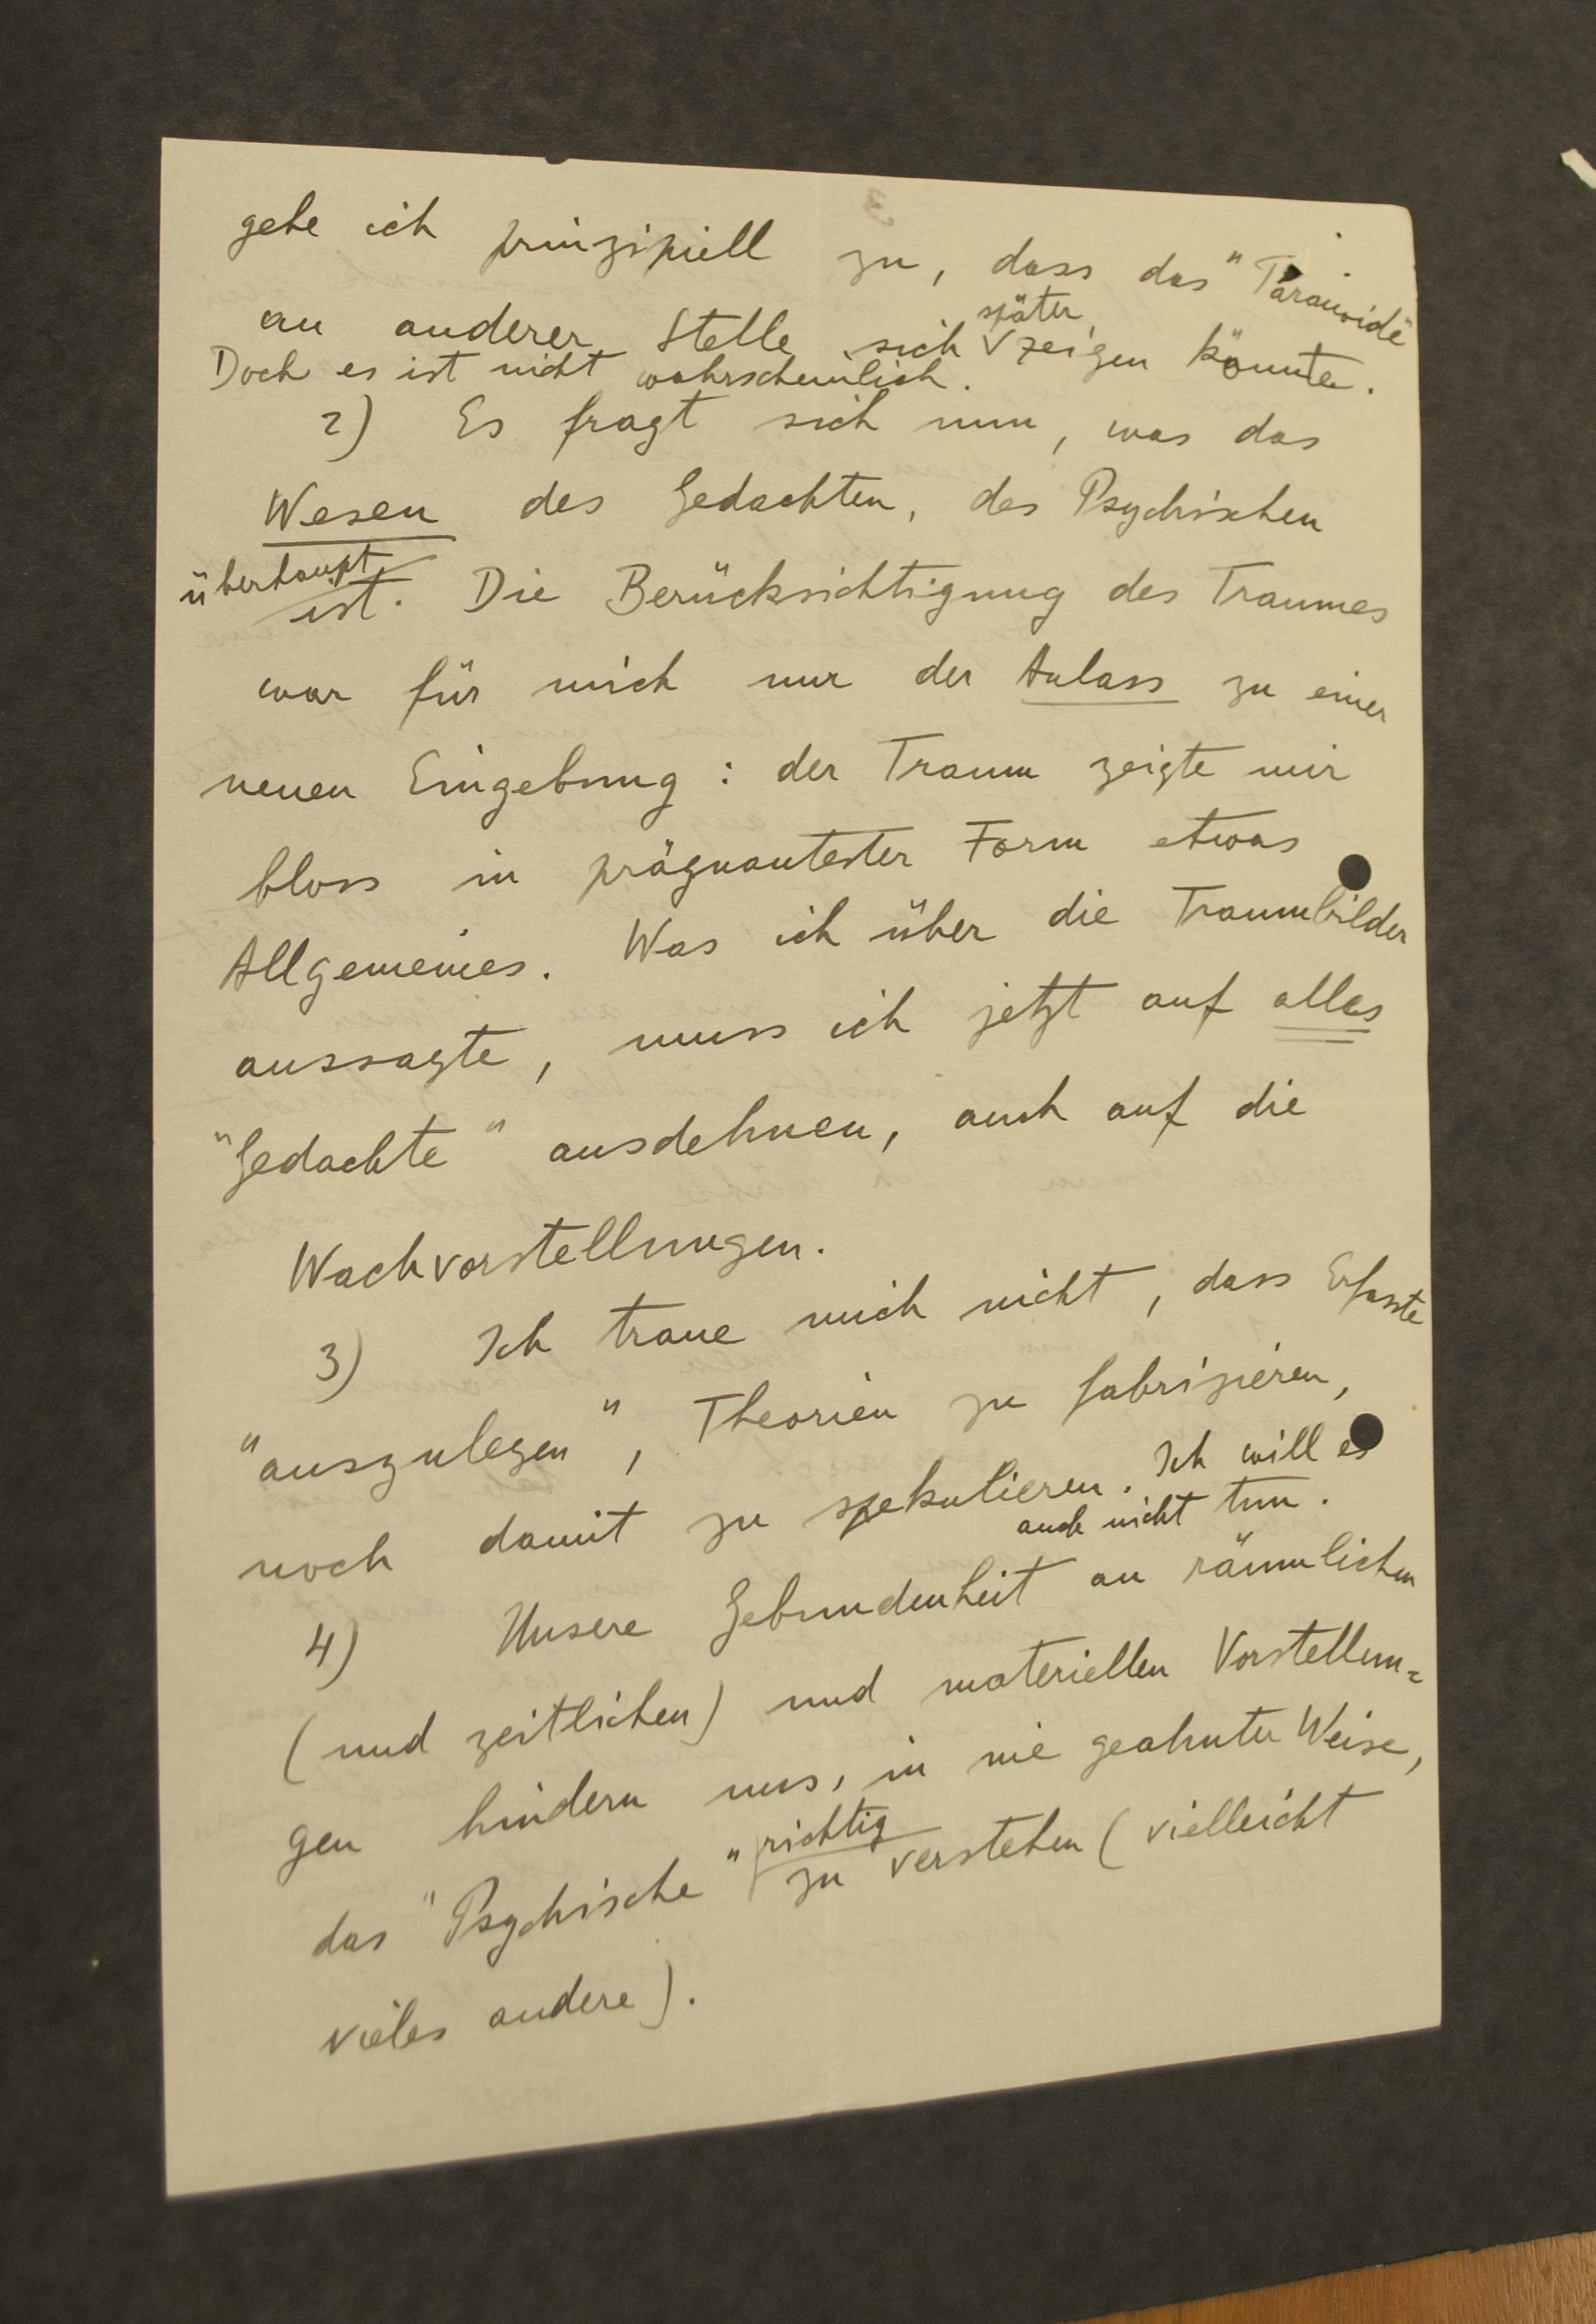 gebe ich prinzipiell zu, dass das "Paranoide"
an anderer Stelle sich später zeigen könnte.
Doch es ist nicht wahrscheinlich.
2) Es fragt sich nun, was das
Wesen des Gedachten, des Psychischen
überhaupt ist. Die Berücksichtigung des Traumes
war für mich nur der Anlass zu einer
neuen Eingebung : der Traum zeigte mir
bloss in prägnantester Form etwas
Allgemeines. Was ich über die Traumbilder
aussagte, muss ich jetzt auf alles
"Gedachte" ausdehnen, auch auf die
Wachvorstellungen.
3) Ich traue mich nicht, dass Erfasste
"auszulegen", Theorien zu fabrizieren,
noch damit zu spekulieren. Ich will es
auch nicht tun.
4) Unsere Gebundenheit an räumlichen
(und zeitlichen) und materiellen Vorstellun=
gen hindern uns, in nie geahnter Weise,
das "Psychische" richtig zu verstehen (vielleicht
vieles andere).